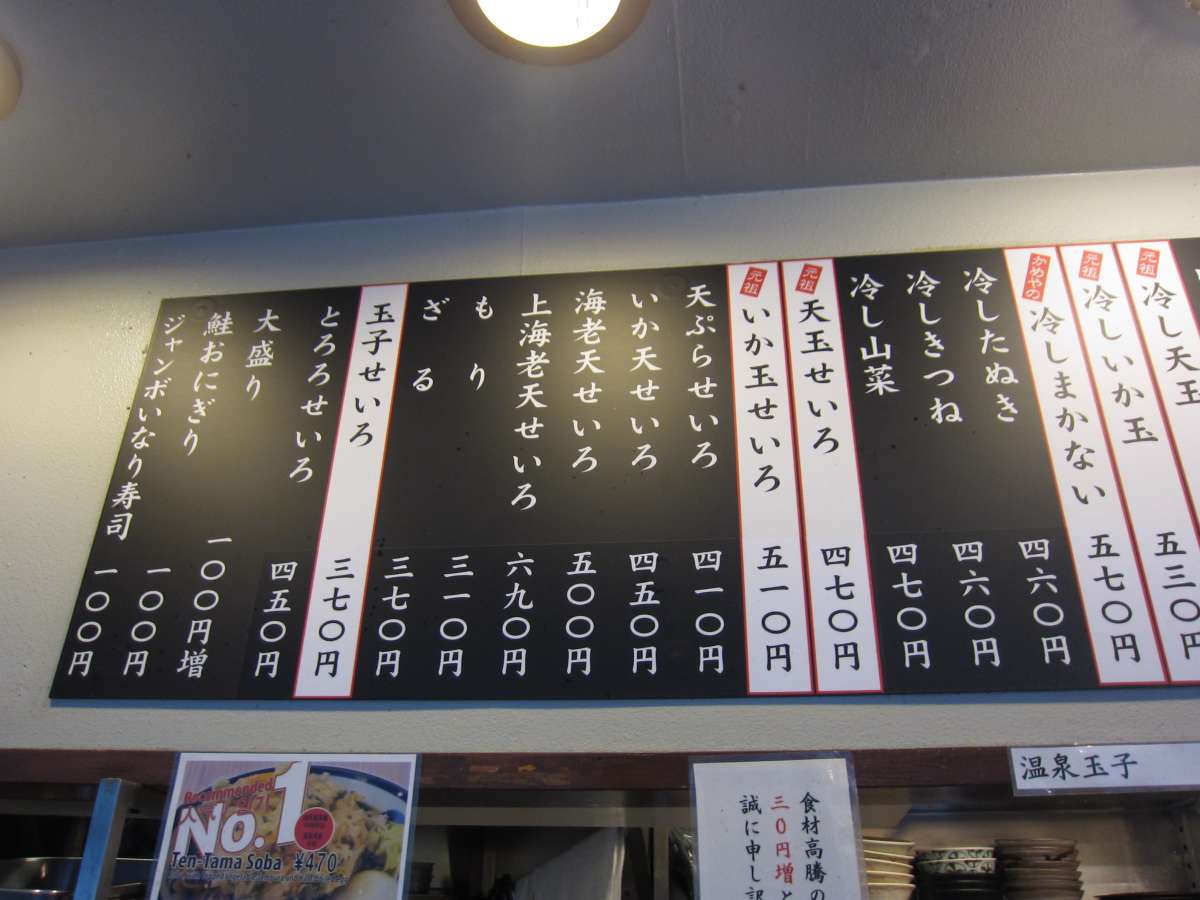 元祖 冷し天玉
元祖 冷しいか玉 五三〇円
かめやの 冷しまかない 五七〇円
冷したぬき 四六〇円
冷しきつね 四六〇円
冷し山菜 四七〇円
元祖 天玉せいろ 四七〇円
元祖 いか玉せいろ 五一〇円
天ぷらせいろ 四一〇円
いか天せいろ 四五〇円
海老天せいろ 五〇〇円
上海老天せいろ 六九〇円
もり 三一〇円
ざる 三七〇円
玉子せいろ 三七〇円
とろろせいろ 四五〇円
大盛り 一〇〇円増
鮭おにぎり 一〇〇円
ジャンボいなり寿司 一〇〇円
温泉玉子
食材高騰の
三０円増と
誠に申し訳
Recommended
No.1
Ten-Tama Soba ¥470